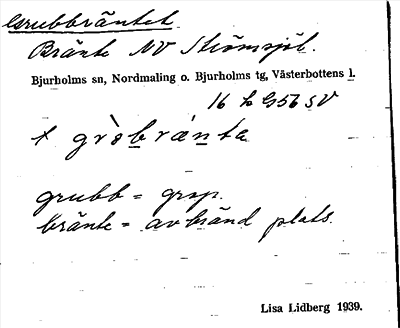 Grubbbräntet.
Bränte NV Strömsjöl.
Bjurholms sn, Nordmaling o. Bjurholms tg, Västerbottens l.
16 h G56 SV
grubb = grop.
bränte = avbränd plats.
Lisa Lidberg 1939.